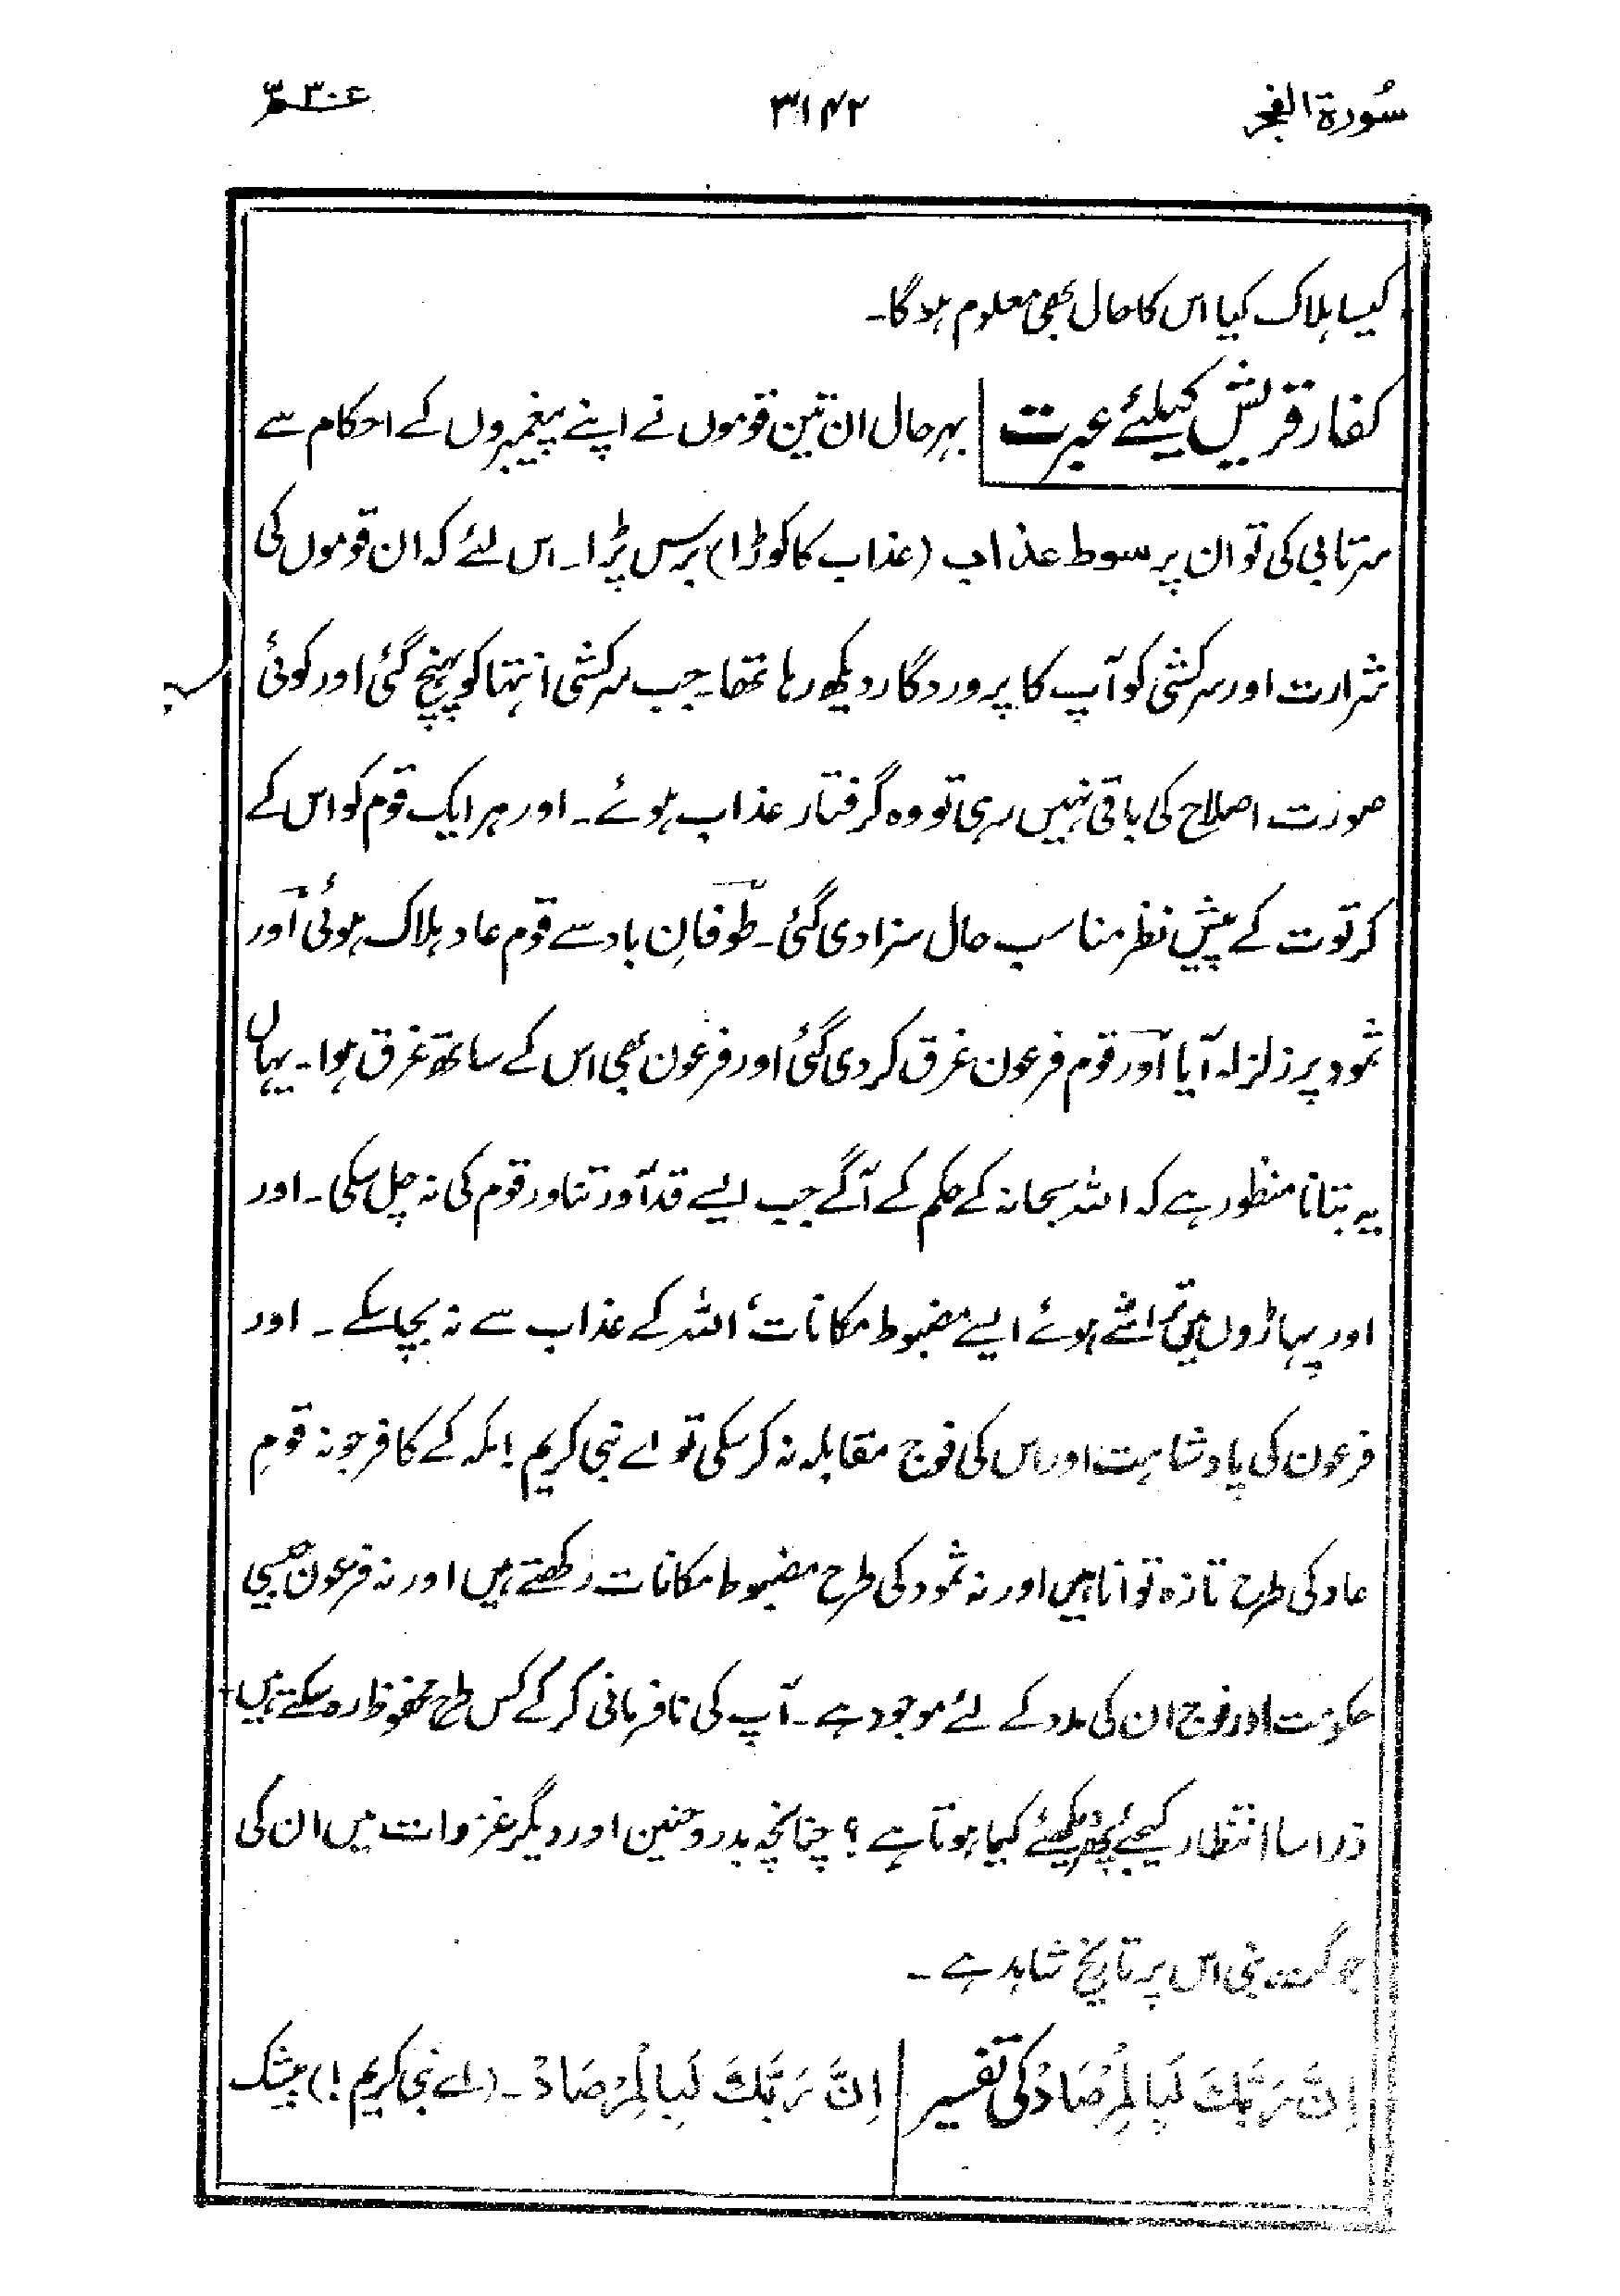 سُورۃ الفجر
۳۱۴۲
عم ۳۰
کیسا ہلاک کیا اس کا حال بھی معلوم ہوگا۔
کفار قریش کیلئے عبرت بہرحال ان تین قوموں نے اپنے پیغمبروں کے احکام سے
سرتابی کی تو ان پر سوط عذاب (عذاب کا کوڑا) برس پڑا۔ اس لئے کہ ان قوموں کی
شرارت اور سرکشی کو آپ کا پروردگار دیکھ رہا تھا۔ جب سرکشی انتہا کو پہنچ گئی اور کوئی
صورت اصلاح کی باقی نہیں رہی تو وہ گرفتار عذاب ہوئے۔ اور ہر ایک قوم کو اس کے
کرتوت کے پیش نظر مناسب حال سزا دی گئی۔ طوفانِ باد سے قوم عاد ہلاک ہوئی اور
ثمود پر زلزلہ آیا اور قوم فرعون غرق کر دی گئی اور فرعون بھی اس کے ساتھ غرق ہوا۔ یہاں
یہ بتانا منظور ہے کہ اللہ سبحانہ کے حکم کے آگے جب ایسے قد آور تناور قوم کی نہ چل سکی۔ اور
اور پہاڑوں میں تراشے ہوئے ایسے مضبوط مکانات اللہ کے عذاب سے نہ بچا سکے۔ اور
فرعون کی پادشاہت اور اس کی فوج مقابلہ نہ کر سکی تو اے نبی کریم! مکہ کے کافر جو نہ قومِ
عاد کی طرح تازہ توانا ہیں اور نہ ثمود کی طرح مضبوط مکانات رکھتے ہیں اور نہ فرعون جیسی
حکومت اور فوج ان کی مدد کے لئے موجود ہے۔ آپ کی نافرمانی کر کے کس طرح محفوظ رہ سکتے ہیں
ذرا سا انتظار کیجئے پھر دیکھئے کیا ہوتا ہے؟ چنانچہ بدر و حنین اور دیگر غزوات میں ان کی
جو گت بنی اس پر تاریخ شاہد ہے۔
اِنَّ رَبَّكَ لَبِالْمِرْصَادْ کی تفسیر اِنَّ رَبَّكَ لَبِالْمِرْصَادْ۔ (اے نبی کریم!) بیشک